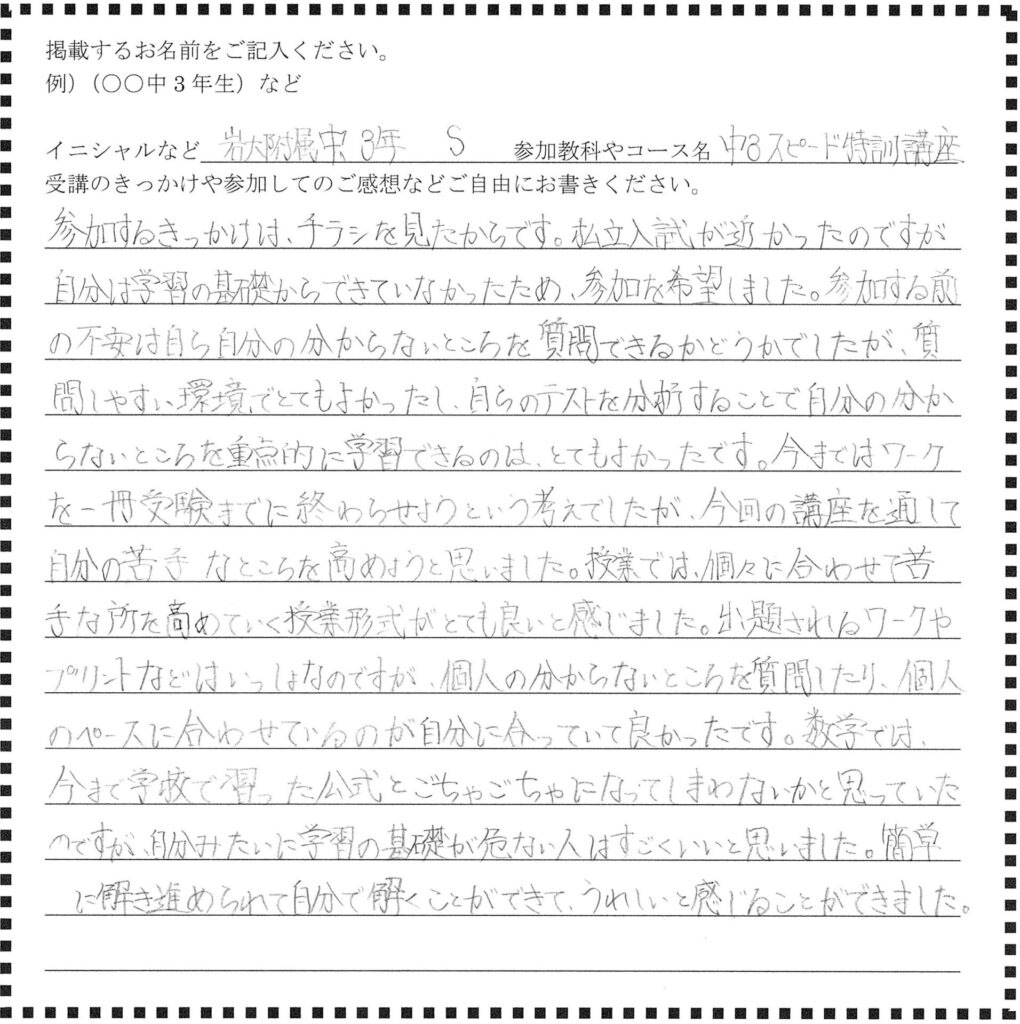 掲載するお名前をご記入ください。
例）（○○中3年生）など
イニシャルなど 岩大附属中 3年 S 参加教科やコース名 中3スピード特訓講座
受講のきっかけや参加してのご感想などご自由にお書きください。
参加するきっかけは、チラシを見たからです。私立入試が近かったのですが
自分は学習の基礎からできていなかったため、参加を希望しました。参加する前
の不安は自ら自分の分からないところを質問できるかどうかでしたが、質
問しやすい環境でとてもよかったし、自らのテストを分析することで自分の分か
らないところを重点的に学習できるのは、とてもよかったです。今まではワーク
を一冊受験までに終わらせようという考えでしたが、今回の講座を通して
自分の苦手なところを高めようと思いました。授業では、個々に合わせて苦
手な所を高めていく授業形式がとても良いと感じました。出題されるワークや
プリントなどはいっしょなのですが、個人の分からないところを質問したり、個人
のペースに合わせているのが自分に合っていて良かったです。数学では、
今まで学校で習った公式とごちゃごちゃになってしまわないかと思っていた
のですが、自分みたいに学習の基礎が危ない人はすごくいいと思いました。簡単
に解き進められて自分で解くことができて、うれしいと感じることができました。